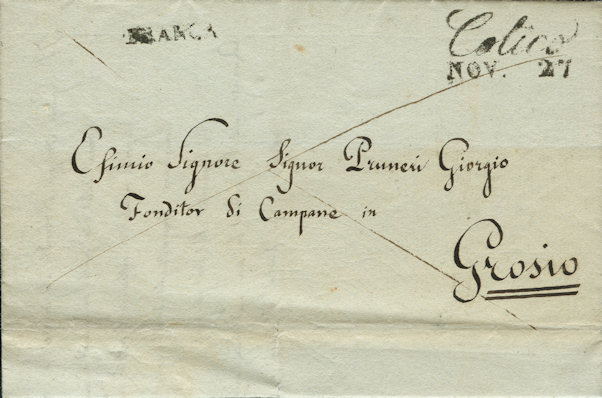 FRANCA
Colico
NOV. 27
Esimio Signore Signor Pruneri Giorgio
Fonditor di Campane in
Grosio